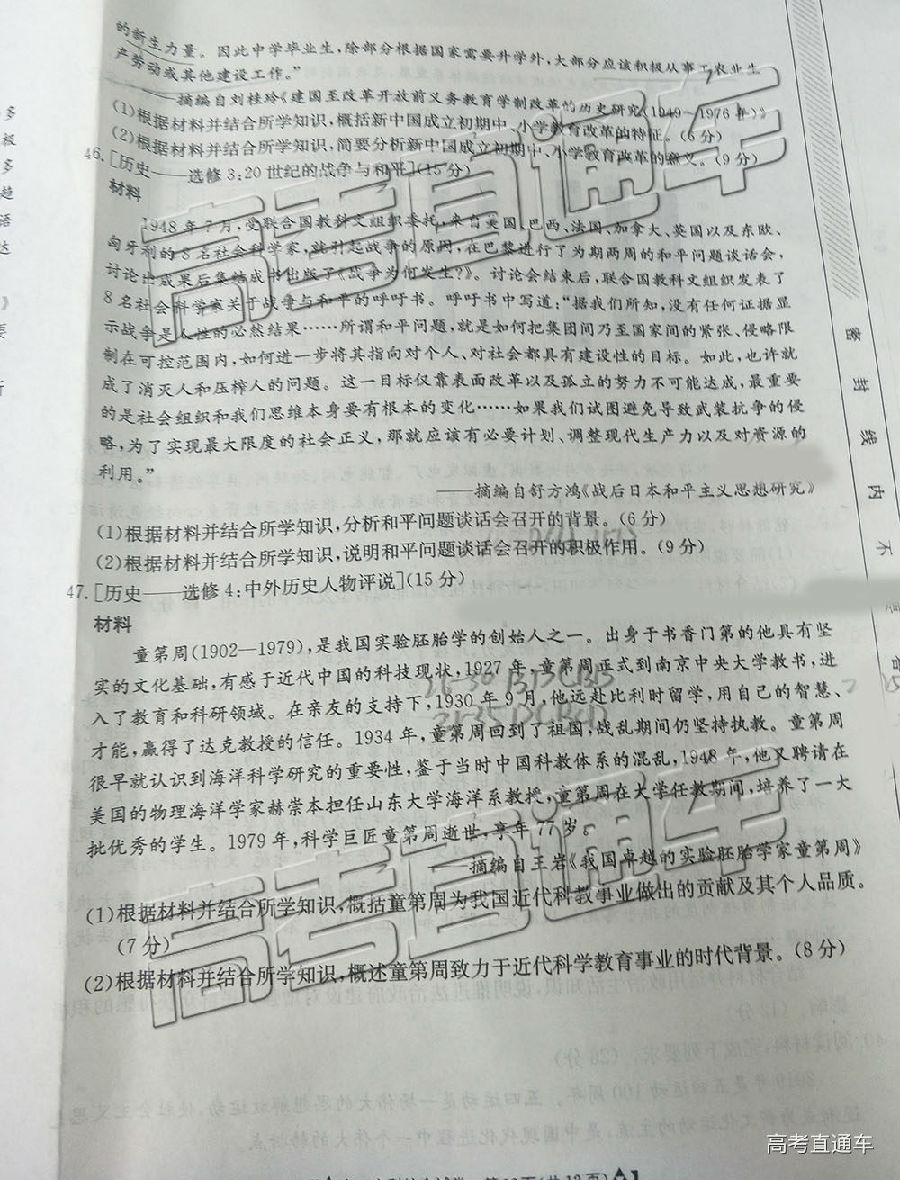 的新生力量。因此中学毕业生,除部分根据国家需要升学外,大部分应该积极从事工农业生
产劳动或其他建设工作。”
——摘编自刘桂玲《建国至改革开放前义务教育学制改革的历史研究(1949—1976年)》
(1)根据材料并结合所学知识,概括新中国成立初期中、小学教育改革的特征。(6分)
(2)根据材料并结合所学知识,简要分析新中国成立初期中、小学教育改革的意义。(9分)
46.[历史——选修3:20世纪的战争与和平](15分)
材料
1948年7月,受联合国教科文组织委托,来自美国、巴西、法国、加拿大、英国以及东欧、
匈牙利的8名社会科学家,就引起战争的原因,在巴黎进行了为期两周的和平问题谈话会,
讨论出成果后集结成书出版了《战争为何发生?》。讨论会结束后,联合国教科文组织发表了
8名社会科学家关于战争与和平的呼吁书。呼吁书中写道:“据我们所知,没有任何证据显
示战争是人性的必然结果……所谓和平问题,就是如何把集团间乃至国家间的紧张、侵略限
制在可控范围内,如何进一步将其指向对个人、对社会都具有建设性的目标。如此,也许就
成了消灭人和压榨人的问题。这一目标仅靠表面改革以及孤立的努力不可能达成,最重要
的是社会组织和我们思维本身要有根本的变化……如果我们试图避免导致武装抗争的侵
略,为了实现最大限度的社会正义,那就应该有必要计划、调整现代生产力以及对资源的
利用。”
——摘编自舒方鸿《战后日本和平主义思想研究》
(1)根据材料并结合所学知识,分析和平问题谈话会召开的背景。(6分)
(2)根据材料并结合所学知识,说明和平问题谈话会召开的积极作用。(9分)
47.[历史——选修4:中外历史人物评说](15分)
材料
童第周(1902—1979),是我国实验胚胎学的创始人之一。出身于书香门第的他具有坚
实的文化基础,有感于近代中国的科技现状,1927年,童第周正式到南京中央大学教书,进
入了教育和科研领域。在亲友的支持下,1930年9月,他远赴比利时留学,用自己的智慧、
才能,赢得了达克教授的信任。1934年,童第周回到了祖国,战乱期间仍坚持执教。童第周
很早就认识到海洋科学研究的重要性,鉴于当时中国科教体系的混乱,1948年,他又聘请在
美国的物理海洋学家赫崇本担任山东大学海洋系教授,童第周在大学任教期间,培养了一大
批优秀的学生。1979年,科学巨匠童第周逝世,享年77岁。
——摘编自王岩《我国卓越的实验胚胎学家童第周》
(1)根据材料并结合所学知识,概括童第周为我国近代科教事业做出的贡献及其个人品质。
(7分)
(2)根据材料并结合所学知识,概述童第周致力于近代科学教育事业的时代背景。(8分)
密
封
线
内
不
高考直通车
高考直通车
高考直通车